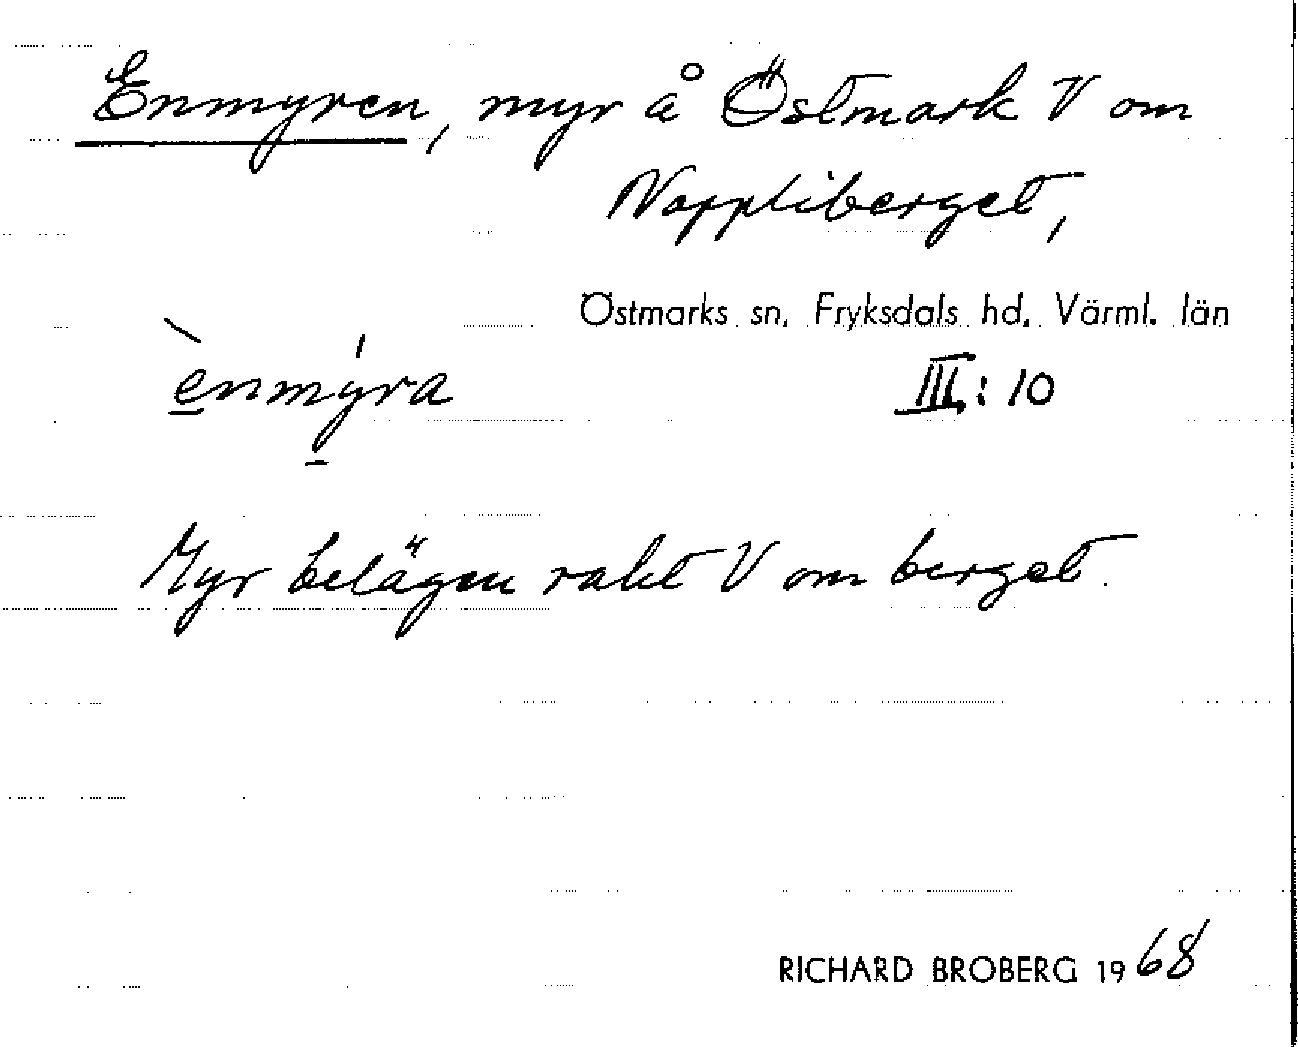 Enmyren, myr å Östmark V om
Noppliberget,
Östmarks sn, Fryksdals hd, Värml. län
ènmýra III:10
Myr belägen rakt V om berget.
RICHARD BROBERG 1968